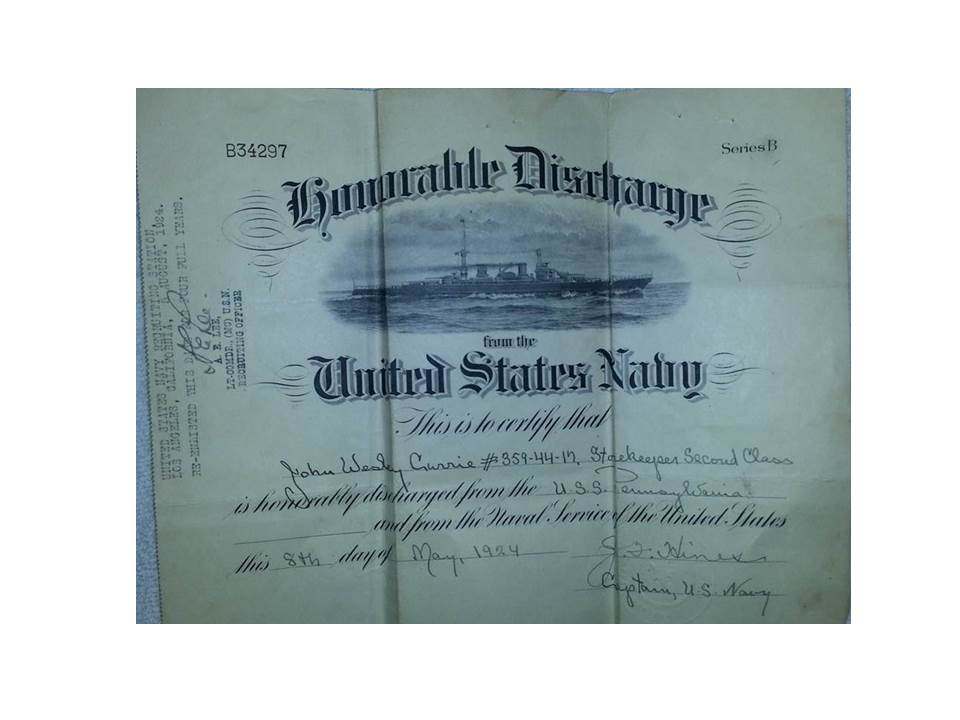 B34297
Series B
Honorable Discharge
from the
United States Navy
This is to certify that
John Wesley Currie #359-44-17, Storekeeper Second Class
is honorably discharged from the U.S.S. Pennsylvania
and from the Naval Service of the United States
this 8th day of May, 1924
Hines
Captain, U.S. Navy
UNITED STATES NAVY RECRUITING STATION,
LOS ANGELES, CALIFORNIA, AUGUST, 1924.
RE-ENLISTED THIS DAY FOR FOUR FULL YEARS.
A. E. LEE,
LT-COMDR., (MC) U.S.N.
RECRUITING OFFICER